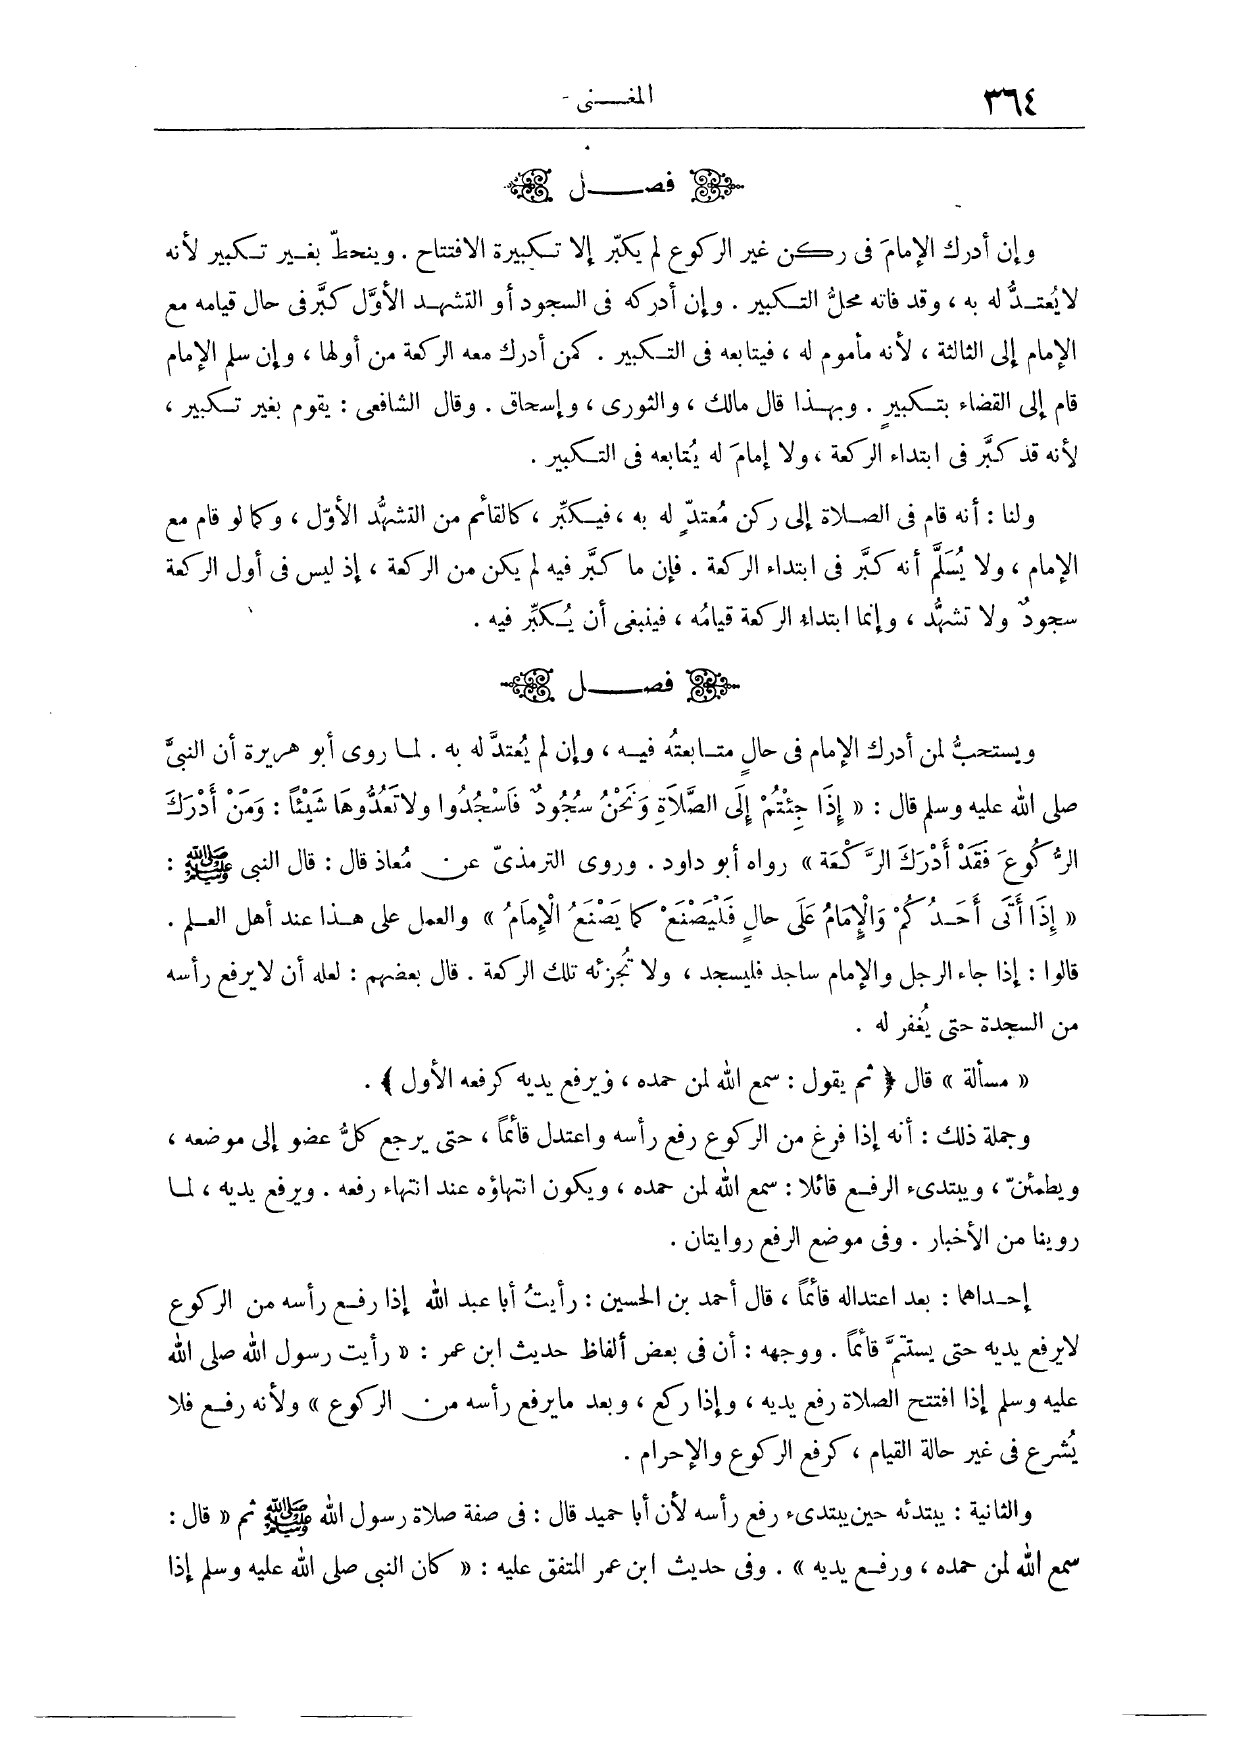 ٣٦٤
المغـنى -
فصـل
وإن أدرك الإمامَ فى ركن غير الركوع لم يكبّر إلا تكبيرة الافتتاح . وينحطّ بغير تكبير لأنه
لا يُعتدُّ له به ، وقد فاته محلُّ التكبير . وإن أدركه فى السجود أو التشهد الأوَّل كبَّر فى حال قيامه مع
الإمام إلى الثالثة ، لأنه مأموم له ، فيتابعه فى التكبير . كمن أدرك معه الركعة من أولها ، وإن سلم الإمام
قام إلى القضاء بتكبيرٍ . وبهذا قال مالك ، والثورى ، وإسحاق . وقال الشافعى : يقوم بغير تكبير ،
لأنه قد كبَّر فى ابتداء الركعة ، ولا إمامَ له يُتابعه فى التكبير .
ولنا : أنه قام فى الصلاة إلى ركن مُعتدٍّ له به ، فيكبِّر ، كالقائم من التشهُّد الأوّل ، وكما لو قام مع
الإمام ، ولا يُسَلَّم أنه كبَّر فى ابتداء الركعة . فإن ما كبَّر فيه لم يكن من الركعة ، إذ ليس فى أول الركعة
سجودٌ ولا تشهُّد ، وإنما ابتداء الركعة قيامُه ، فينبغى أن يُكبِّر فيه .
فصـل
ويستحبُّ لمن أدرك الإمام فى حالٍ متابعتُه فيه ، وإن لم يُعتدَّ له به . لما روى أبو هريرة أن النبىَّ
صلى الله عليه وسلم قال : « إِذَا جِئْتُمْ إِلَى الصَّلَاةِ وَنَحْنُ سُجُودٌ فَاسْجُدُوا ولا تَعُدُّوهَا شَيْئًا : وَمَنْ أَدْرَكَ
الرُّكُوعَ فَقَدْ أَدْرَكَ الرَّكْعَةَ » رواه أبو داود . وروى الترمذىّ عن مُعاذ قال : قال النبى ﷺ :
« إِذَا أَتَى أَحَدُكُمْ وَالْإِمَامُ عَلَى حَالٍ فَلْيَصْنَعْ كما يَصْنَعُ الْإِمَامُ » والعمل على هذا عند أهل العلم .
قالوا : إذا جاء الرجل والإمام ساجد فليسجد ، ولا تُجزئه تلك الركعة . قال بعضهم : لعله أن لا يرفع رأسه
من السجدة حتى يُغفر له .
« مسألة » قال ﴿ ثم يقول : سمع الله لمن حمده ، ويرفع يديه كرفعه الأول ﴾ .
وجملة ذلك : أنه إذا فرغ من الركوع رفع رأسه واعتدل قائمًا ، حتى يرجع كلُّ عضو إلى موضعه ،
ويطمئنّ ، ويبتدىء الرفع قائلا : سمع الله لمن حمده ، ويكون انتهاؤه عند انتهاء رفعه . ويرفع يديه ، لما
روينا من الأخبار . وفى موضع الرفع روايتان .
إحداهما : بعد اعتداله قائمًا ، قال أحمد بن الحسين : رأيتُ أبا عبد الله إذا رفع رأسه من الركوع
لا يرفع يديه حتى يستتمَّ قائمًا . ووجهه : أن فى بعض ألفاظ حديث ابن عمر : « رأيت رسول الله صلى الله
عليه وسلم إذا افتتح الصلاة رفع يديه ، وإذا ركع ، وبعد مايرفع رأسه من الركوع » ولأنه رفع فلا
يُشرع فى غير حالة القيام ، كرفع الركوع والإحرام .
والثانية : يبتدئه حين يبتدىء رفع رأسه لأن أبا حميد قال : فى صفة صلاة رسول الله ﷺ ثم « قال :
سمع الله لمن حمده ، ورفع يديه » . وفى حديث ابن عمر المتفق عليه : « كان النبى صلى الله عليه وسلم إذا